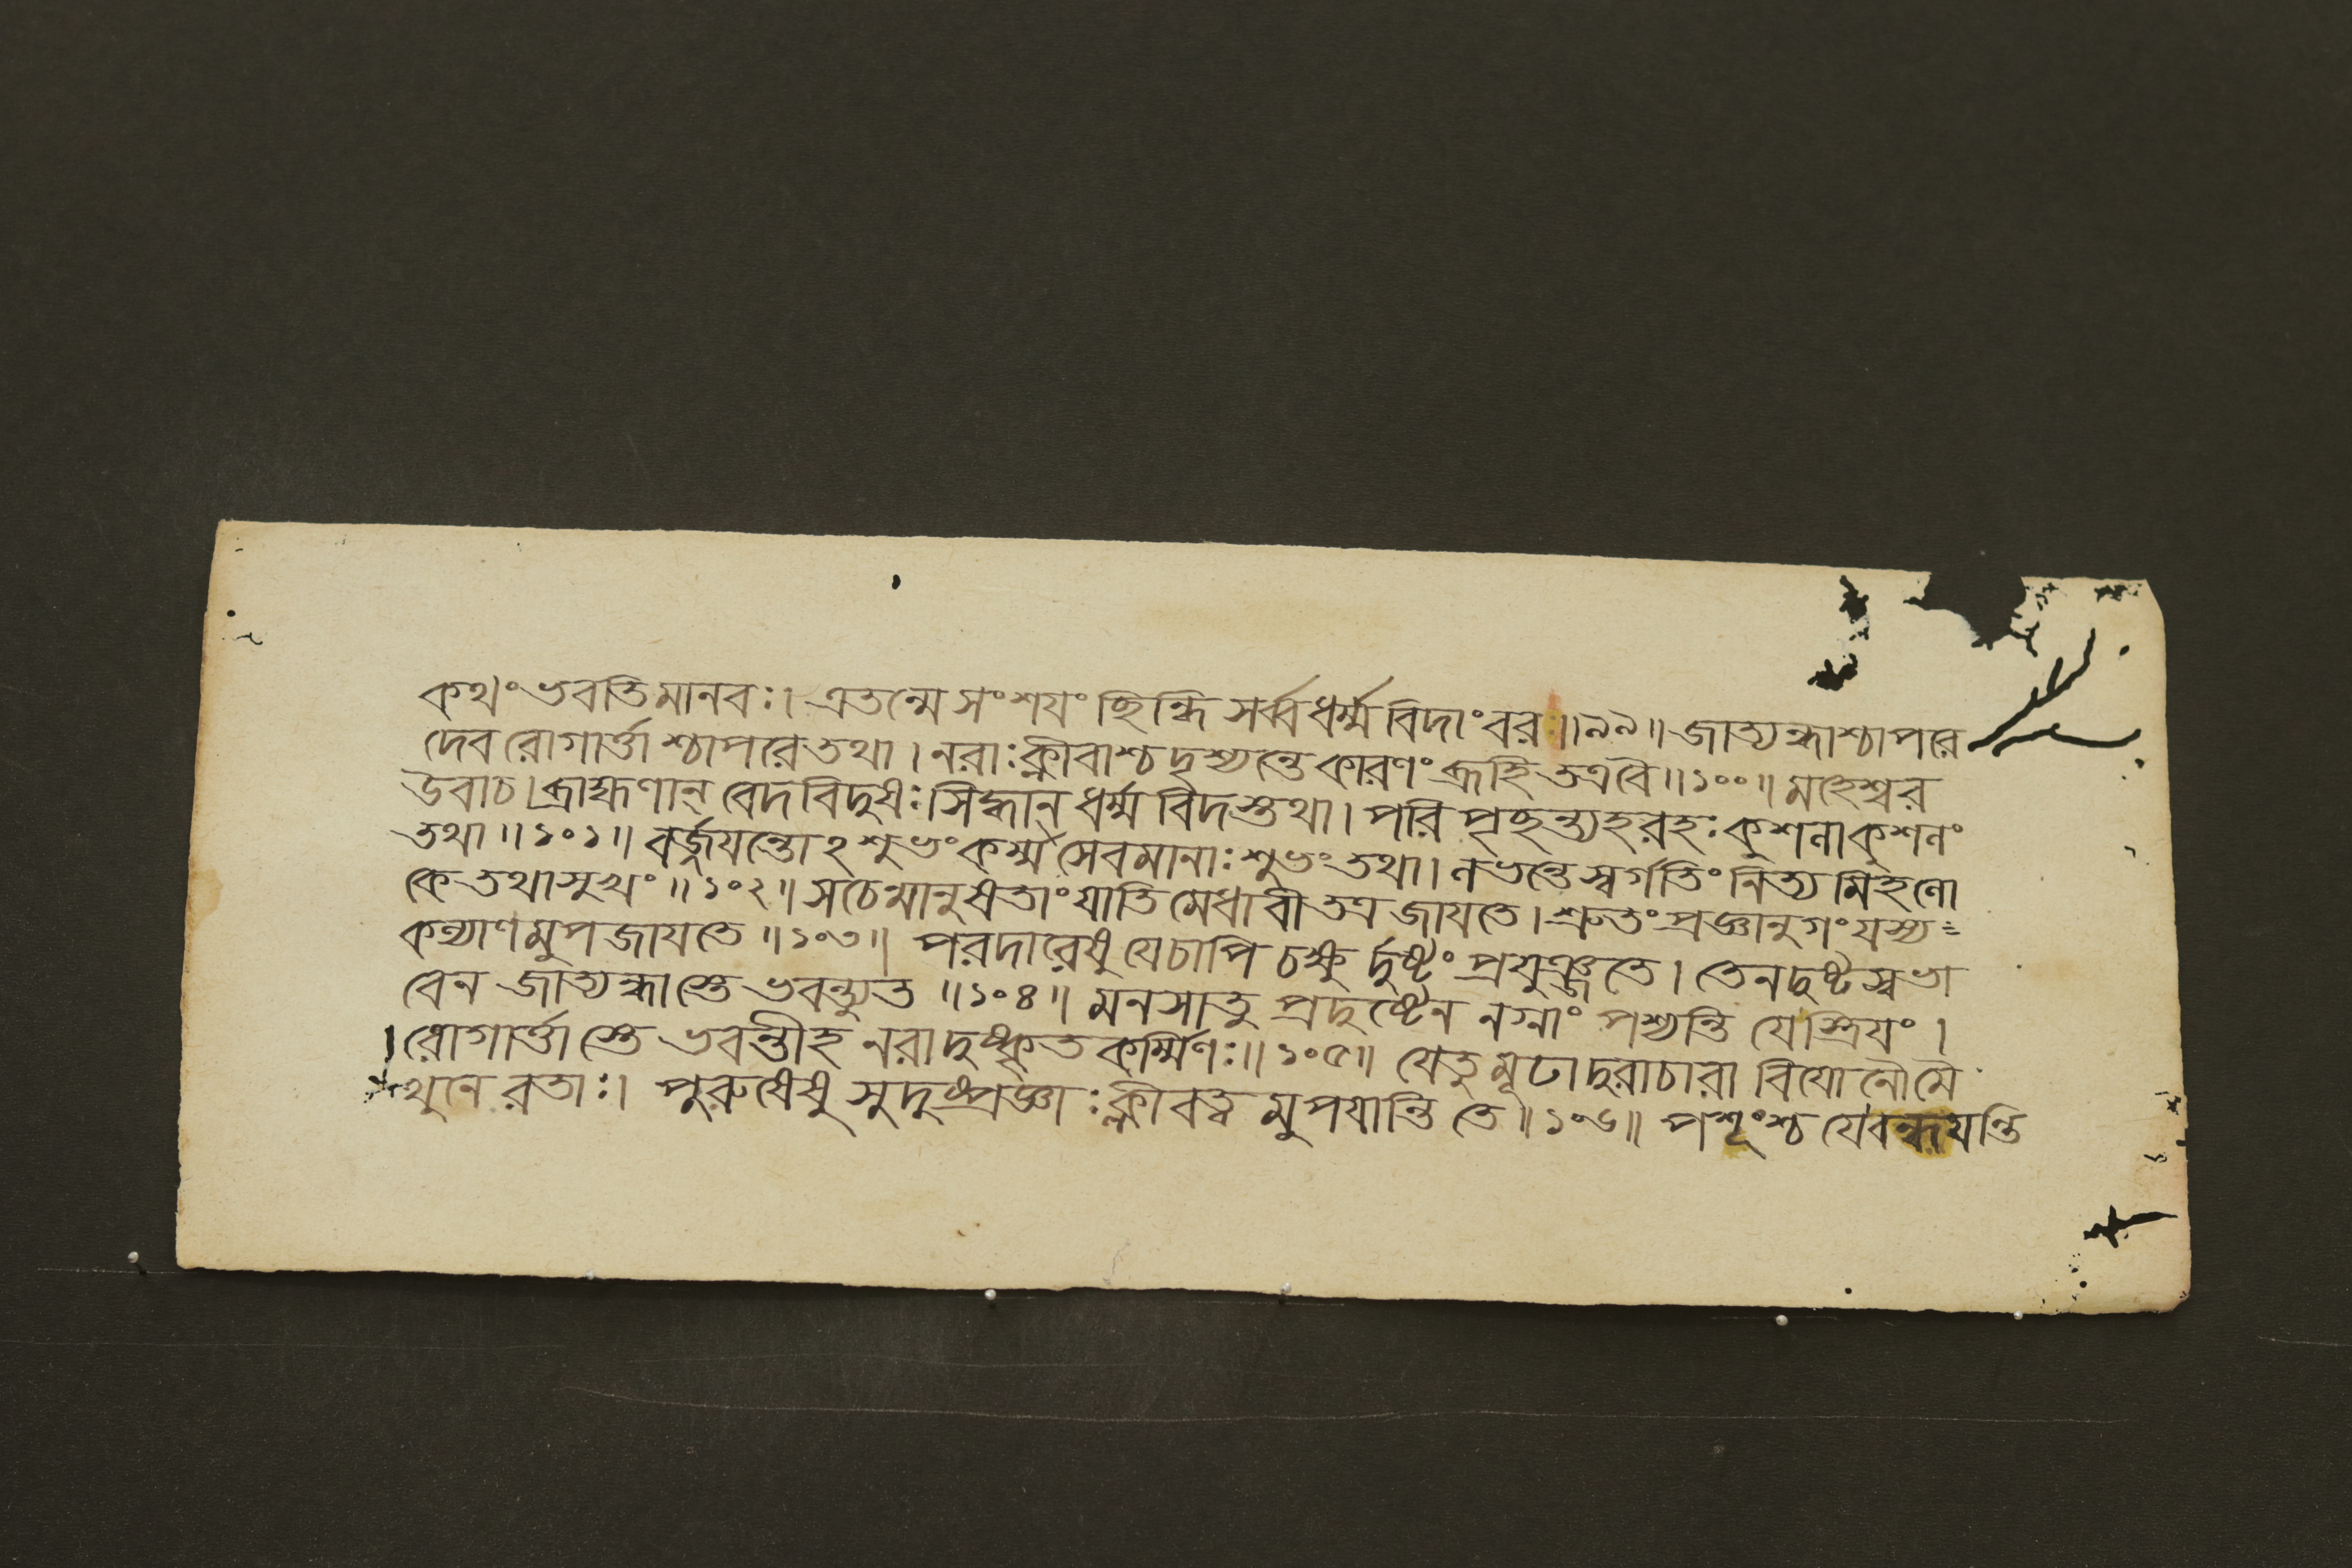 কথং ভবতি মানবঃ। এতন্মে সংশযং ছিন্ধি সর্ব্বধর্ম্মবিদাংবরঃ॥৯৯॥ জাত্যন্ধাশ্চাপরে
দেব রোগার্ত্তাশ্চাপরেতথা। নরাঃক্লীবাশ্চ দৃশ্যন্তে কারণং ব্রূহি তত্রবৈ॥১০০॥ মহেশ্বর
উবাচ। ব্রাহ্মণান্ বেদবিদুষঃ। সিদ্ধান্ ধর্ম্মবিদস্তথা। পরিপৃছন্ত্যহরহঃ কুশলাকুশলং
তথা॥১০১॥ বর্জ্জযন্তোঽশুভং কর্ম্ম সেবমানাঃ শুভং তথা। লভন্তে স্বর্গতিং নিত্যমিহলো
কে তথাসুখং॥১০২॥ সচেমানুষতাং যাতি মেধাবী তত্র জাযতে। শ্রুতং প্রজ্ঞানুগং যস্য=
কল্যাণমুপজাযতে॥১০৩॥ পরদারেষু যেচাপি চক্ষুর্দুষ্টং প্রযুঞ্জতে। তেনদুষ্টস্বভা
বেন জাত্যন্ধাস্তে ভবন্ত্যুত॥১০৪॥ মনসাতু প্রদুষ্টেন নগ্নাং পশ্যন্তি যেস্ত্রিযং।
।রোগার্ত্তাস্তে ভবন্তীহ নরাদুষ্কৃতকর্ম্মিণঃ॥১০৫॥ যেতু মূঢাদুরাচারা বিযোনৌমৈ
থুনে রতাঃ। পুরুষেষু সুদুষ্প্রজ্ঞাঃ ক্লীবত্বমুপযান্তি তে॥১০৬॥ পশূংশ্চ যেবন্ধযন্তি